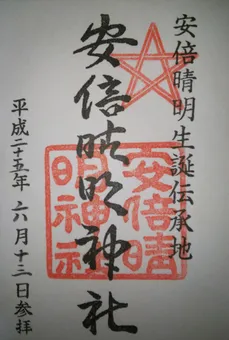 安倍晴明生誕伝承地
安倍晴明神社
安倍晴
明神社
平成二十五年 六月十三日参拝